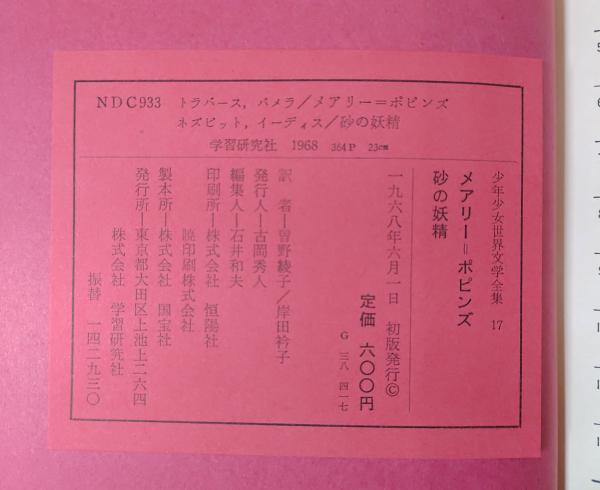 NDC933 トラバース,パメラ/メアリー=ポピンズ
ネズビット,イーディス/砂の妖精
学習研究社 1968 364P 23cm
少年少女世界文学全集 17
メアリー=ポピンズ
砂の妖精
一九六八年六月一日 初版発行©
定価 六〇〇円
G 三八 四一七
訳者―曽野綾子/岸田衿子
発行人―古岡秀人
編集人―石井和夫
印刷所―株式会社 恒陽社
暁印刷株式会社
製本所―株式会社 国宝社
発行所―東京都大田区上池上二六四
株式会社 学習研究社
振替 一四二九三〇